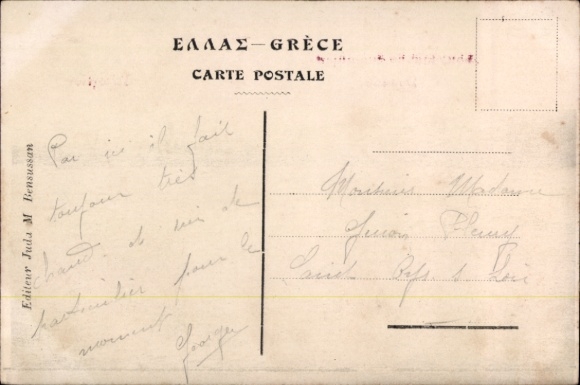 ΕΛΛΑΣ — GRÈCE
CARTE POSTALE
Editeur Juda M Bensussan
Par ici il fait
toujour très
chaud. et rien de
particulier pour le
moment
Georges
Monsieur Madame
Simon
Saint s Loir